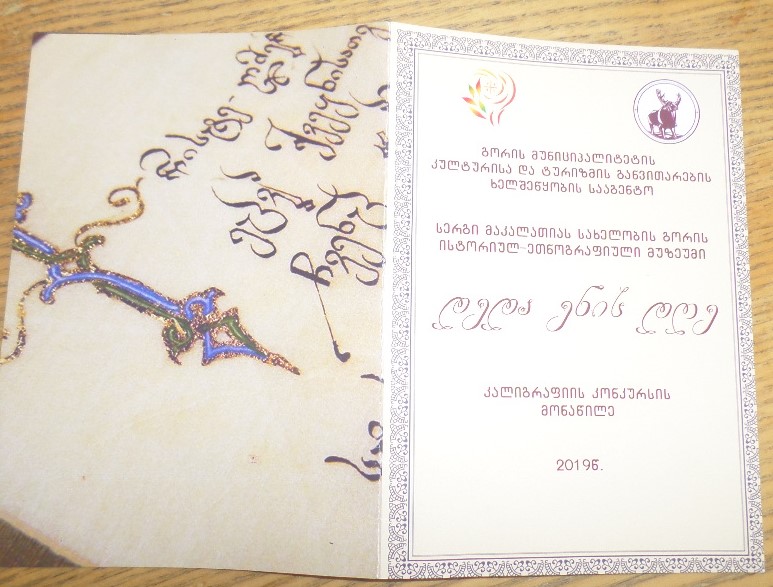 გორის მუნიციპალიტეტის
კულტურისა და ტურიზმის განვითარების
ხელშეწყობის სააგენტო
სერგი მაკალათიას სახელობის გორის
ისტორიულ-ეთნოგრაფიული მუზეუმი
დედა ენის დღე
კალიგრაფიის კონკურსის
მონაწილე
2019წ.